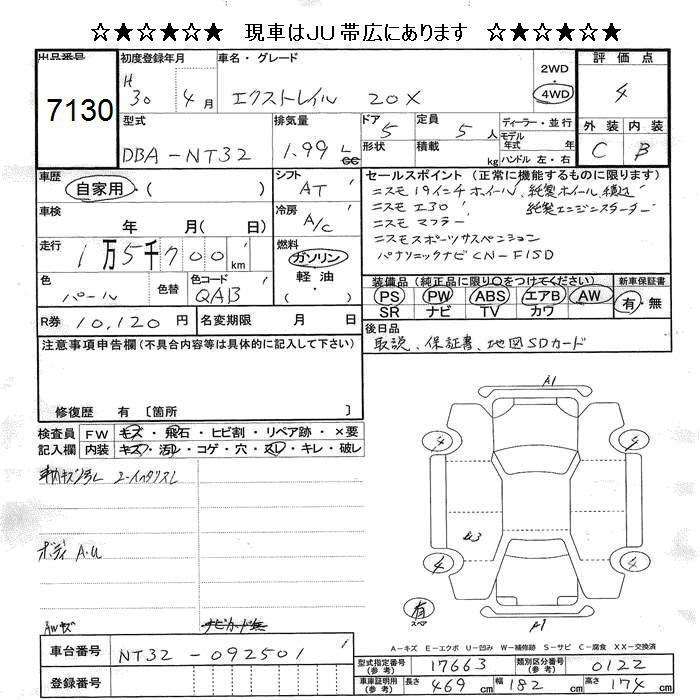 ☆★☆★☆★ 現車はJU帯広にあります ☆★☆★☆★
出品番号 初度登録年月 車名・グレード 評価点
7130 H30 4月 エクストレイル 20X 2WD 4WD 4
型式 排気量 ドア 定員 ディーラー・並行 外装 内装
DBA-NT32 1.99 L cc 5 5人 モデル年式 年 C B
形状 積載 kg ハンドル 左・右
車歴 自家用・( ) シフト AT セールスポイント (正常に機能するものに限ります)
ニスモ19インチホイル、純製ホイル積込
車検 年 月( 日) 冷房 A/C ニスモ エ30 純製エンジンスターター
ニスモ マフラー
走行 1万5千700km 燃料 ガソリン ニスモスポーツサスペンション
軽油・( ) パナソニックナビ CN-F1SD
色 パール 色替 色コード QAB
装備品 (純正品に限り○をつけてください) 新車保証書
PS PW ABS エアB AW 有・無
SR ナビ TV カワ
R券 10,120円 名変期限 月 日 後日品
取説、保証書、地図SDカード
注意事項申告欄(不具合内容等は具体的に記入して下さい)
修復歴 有 〔箇所 〕
検査員記入欄 FW モズ・飛石・ヒビ割・リペア跡・×要
内装 キズ・汚レ・コゲ・穴・スレ・キレ・破レ
A1
4 4
ボディ A.U
4 4
有 スペア
A1
AWキズ
A-キズ E-エクボ U-凹み W-補修跡 S-サビ C-腐食 XX-交換済
車台番号 NT32-092501
型式指定番号(参考) 17663 類別区分番号(参考) 0122
登録番号
車庫証明用(参考) 長さ 469cm 幅 182cm 高さ 174cm